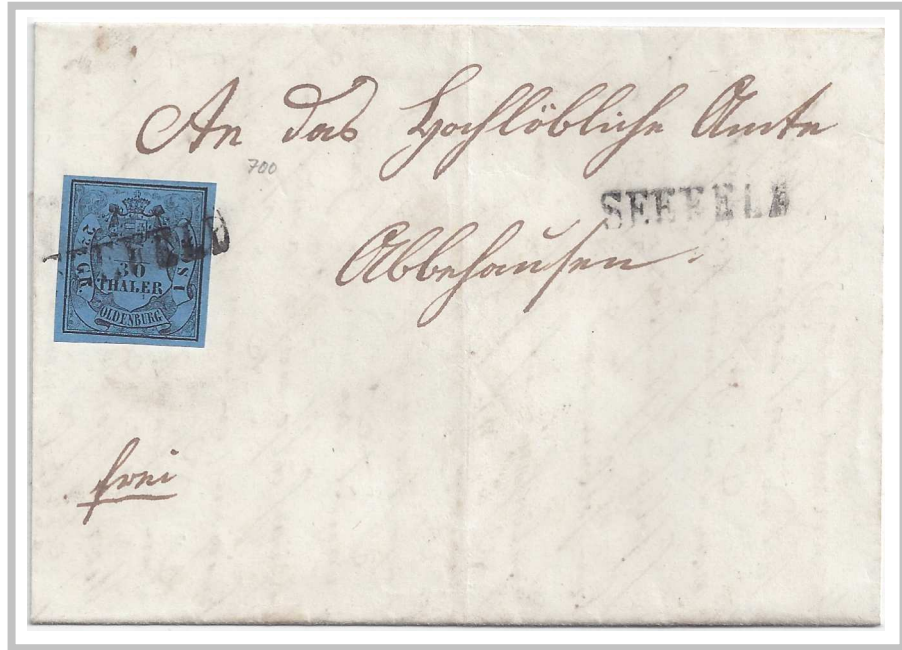 An das Hochlöbliche Amte
700
SEEFELD
Abbehausen.
30
THALER
OLDENBURG
frei